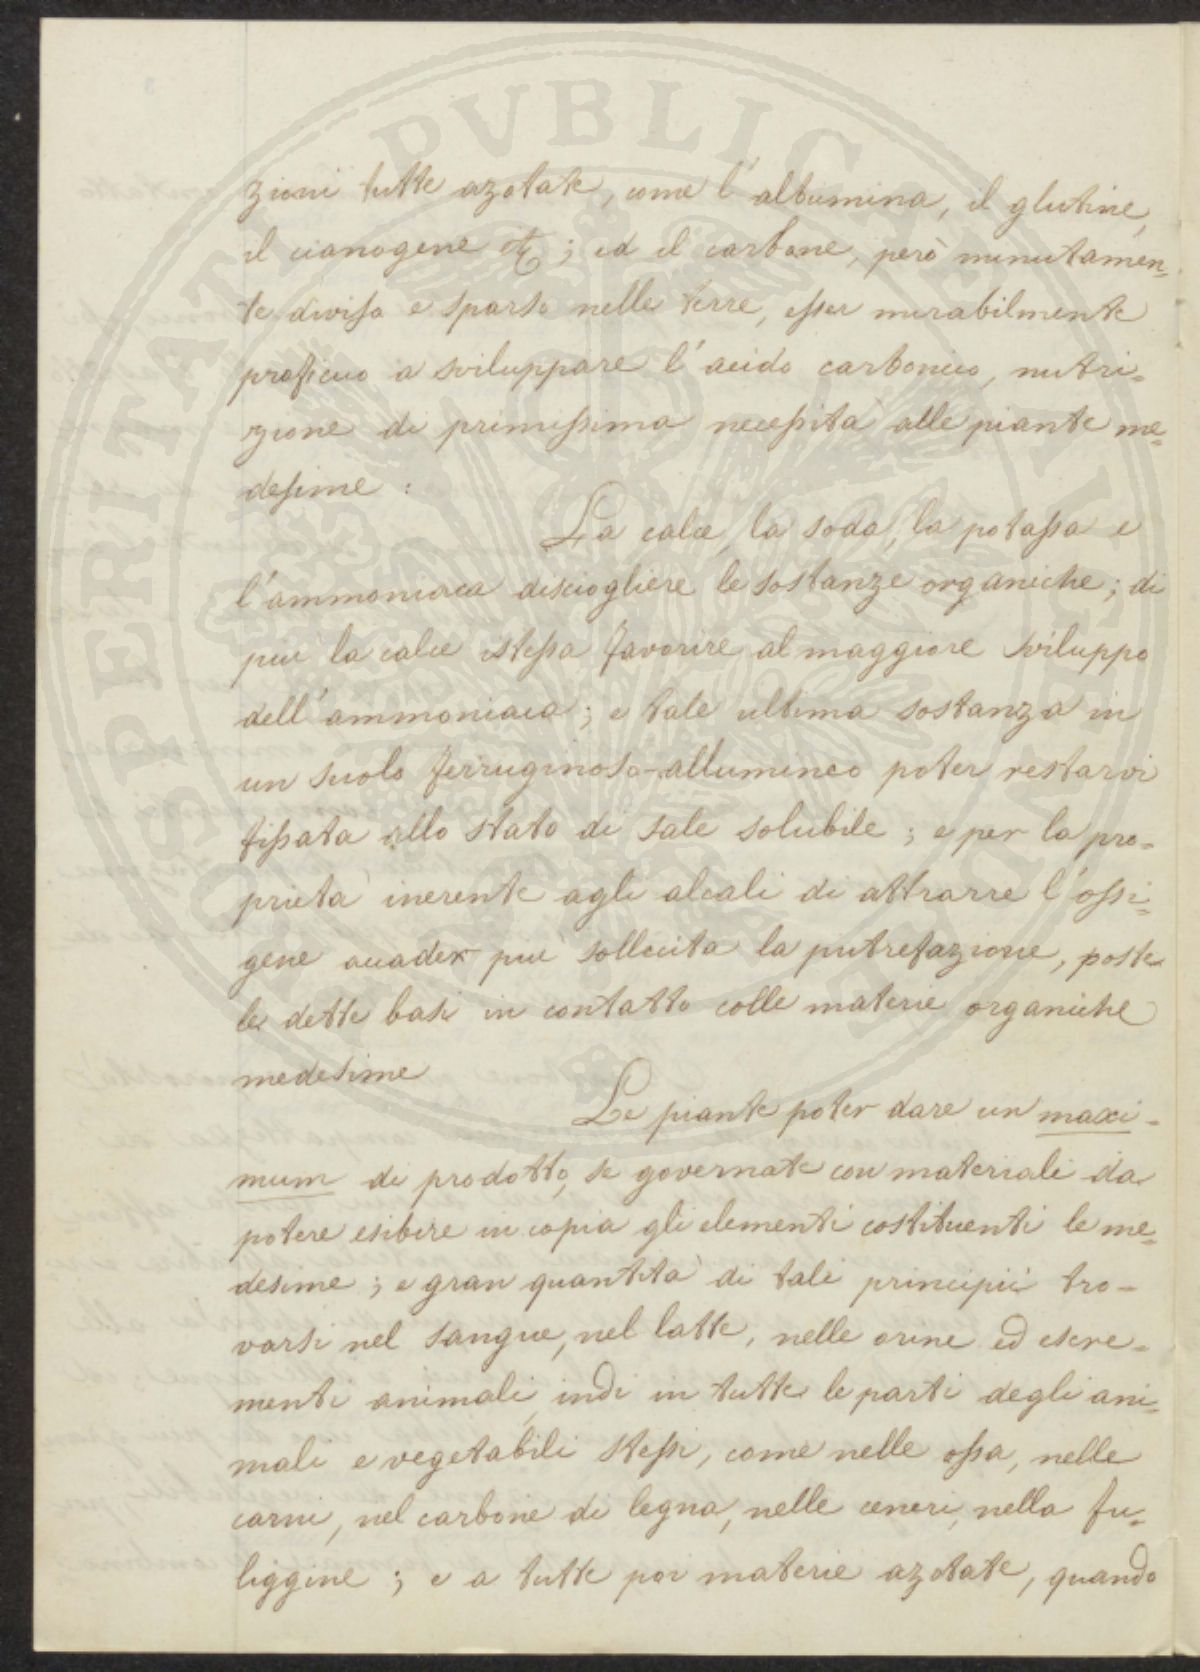 zioni tutte azotate, come l'albumina, il glutine,
il cianogene etc; ed il carbone, però minutamen-
te diviso e sparso nelle terre, esser mirabilmente
proficuo a sviluppare l'acido carbonico, nutri-
zione di primissima necessità alle piante me-
desime:
La calce, la soda, la potassa e
l'ammoniaca disciogliere le sostanze organiche; di
più la calce istessa favorire al maggiore sviluppo
dell'ammoniaca; e tale ultima sostanza in
un suolo ferruginoso-allumineo poter restarvi
fissata allo stato di sale solubile; e per la pro-
prietà inerente agli alcali di attrarre l'ossi-
gene accader più sollecita la putrefazione, poste
le dette basi in contatto colle materie organiche
medesime
Le piante poter dare un maxi-
mum di prodotto, se governate con materiali da
potere esibire in copia gli elementi costituenti le me-
desime; e gran quantità di tali principii tro-
varsi nel sangue, nel latte, nelle orine ed escre-
menti animali, indi in tutte le parti degli ani-
mali e vegetabili stessi, come nelle ossa, nelle
carni, nel carbone di legna, nelle ceneri, nella fu-
liggine; e a tutte poi materie azotate, quando
PROSPERITATI PVBLICAE AVGENDAE